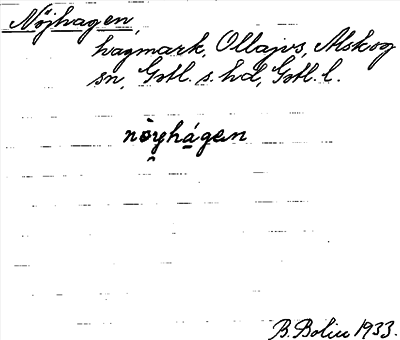 Nöjhagen,
hagmark, Ollajvs, Alskog
sn, Gotl. s. hd, Gotl. l.
nòyhágen
B. Bolin 1933.